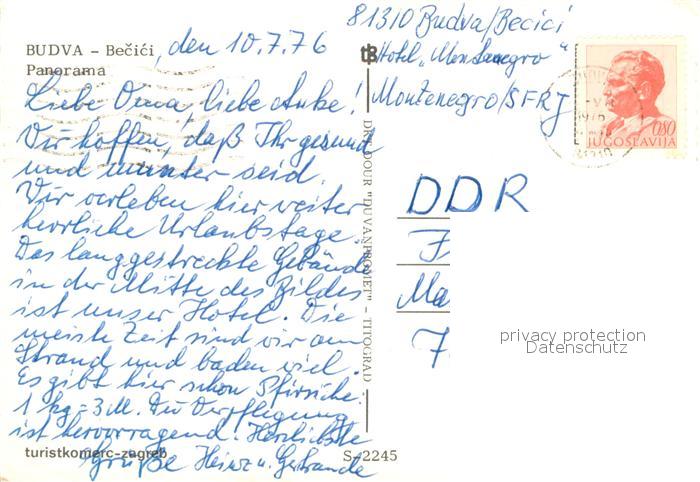 BUDVA – Bečići, den 10.7.76
Panorama
Liebe Oma, liebe Anke!
Wir hoffen, daß Ihr gesund
und munter seid.
Wir verleben hier weiter
herrliche Urlaubstage.
Das langgestreckte Gebäude
in der Mitte des Bildes
ist unser Hotel. Die
meiste Zeit sind wir am
Strand und baden viel.
Es gibt hier schon Pfirsiche:
1 kg = 3 M. Die Verpflegung
ist hervorragend. Herzlichste
Grüße Heinz u. Gertraude
turistkomerc-zagreb
S-2245
"DUVANPROMET" – TITOGRAD
81310 Budva/Becici
Hotel „Montenegro“
Montenegro/SFRJ
0.80
JUGOSLAVIJA
1976
DDR
F
Ma
7
privacy protection
Datenschutz